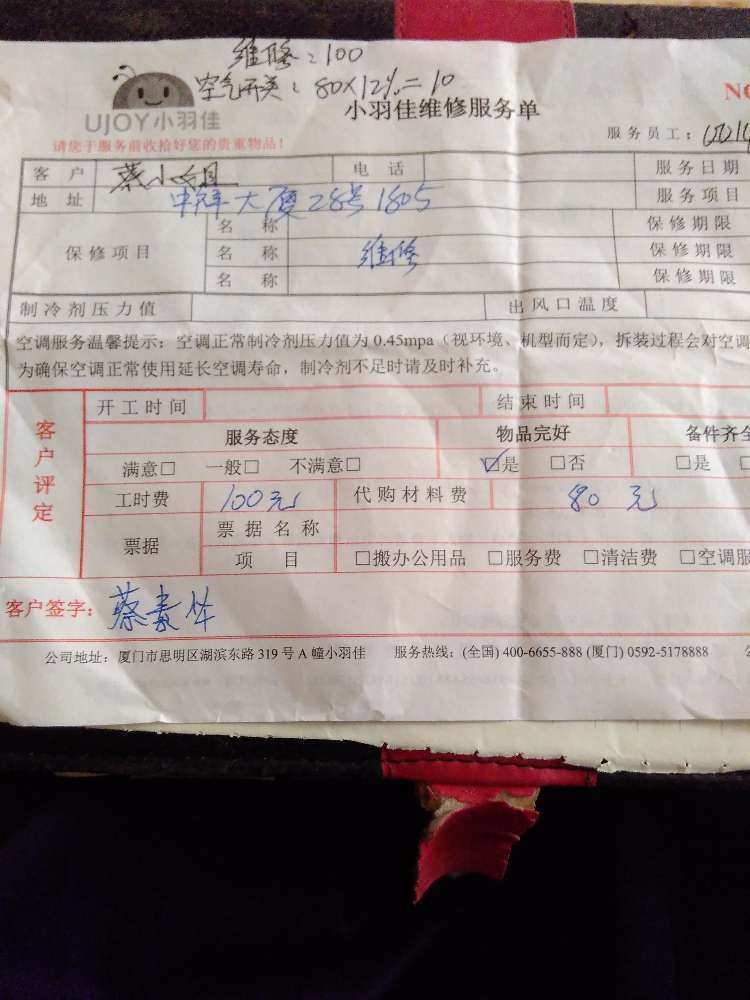 维修:100
空气开关:80×12%=10
UJOY小羽佳
小羽佳维修服务单
NO
请您于服务前收拾好您的贵重物品!
服务员工:
客 户 蔡小姐 电 话 服务日期
地 址 大厦28号1805 服务项目
保修项目
名 称 保修期限
名 称 维修 保修期限
名 称 保修期限
制冷剂压力值 出风口温度
空调服务温馨提示:空调正常制冷剂压力值为0.45mpa(视环境、机型而定),拆装过程会对空调
为确保空调正常使用延长空调寿命,制冷剂不足时请及时补充。
客户评定
开工时间 结束时间
服务态度 物品完好 备件齐全
满意□ 一般□ 不满意□ ☑是 □否 □是
工时费 100元 代购材料费 80元
票据 票据名称
项 目 □搬办公用品 □服务费 □清洁费 □空调服
客户签字:蔡
公司地址:厦门市思明区湖滨东路319号A幢小羽佳 服务热线:(全国)400-6655-888 (厦门)0592-5178888